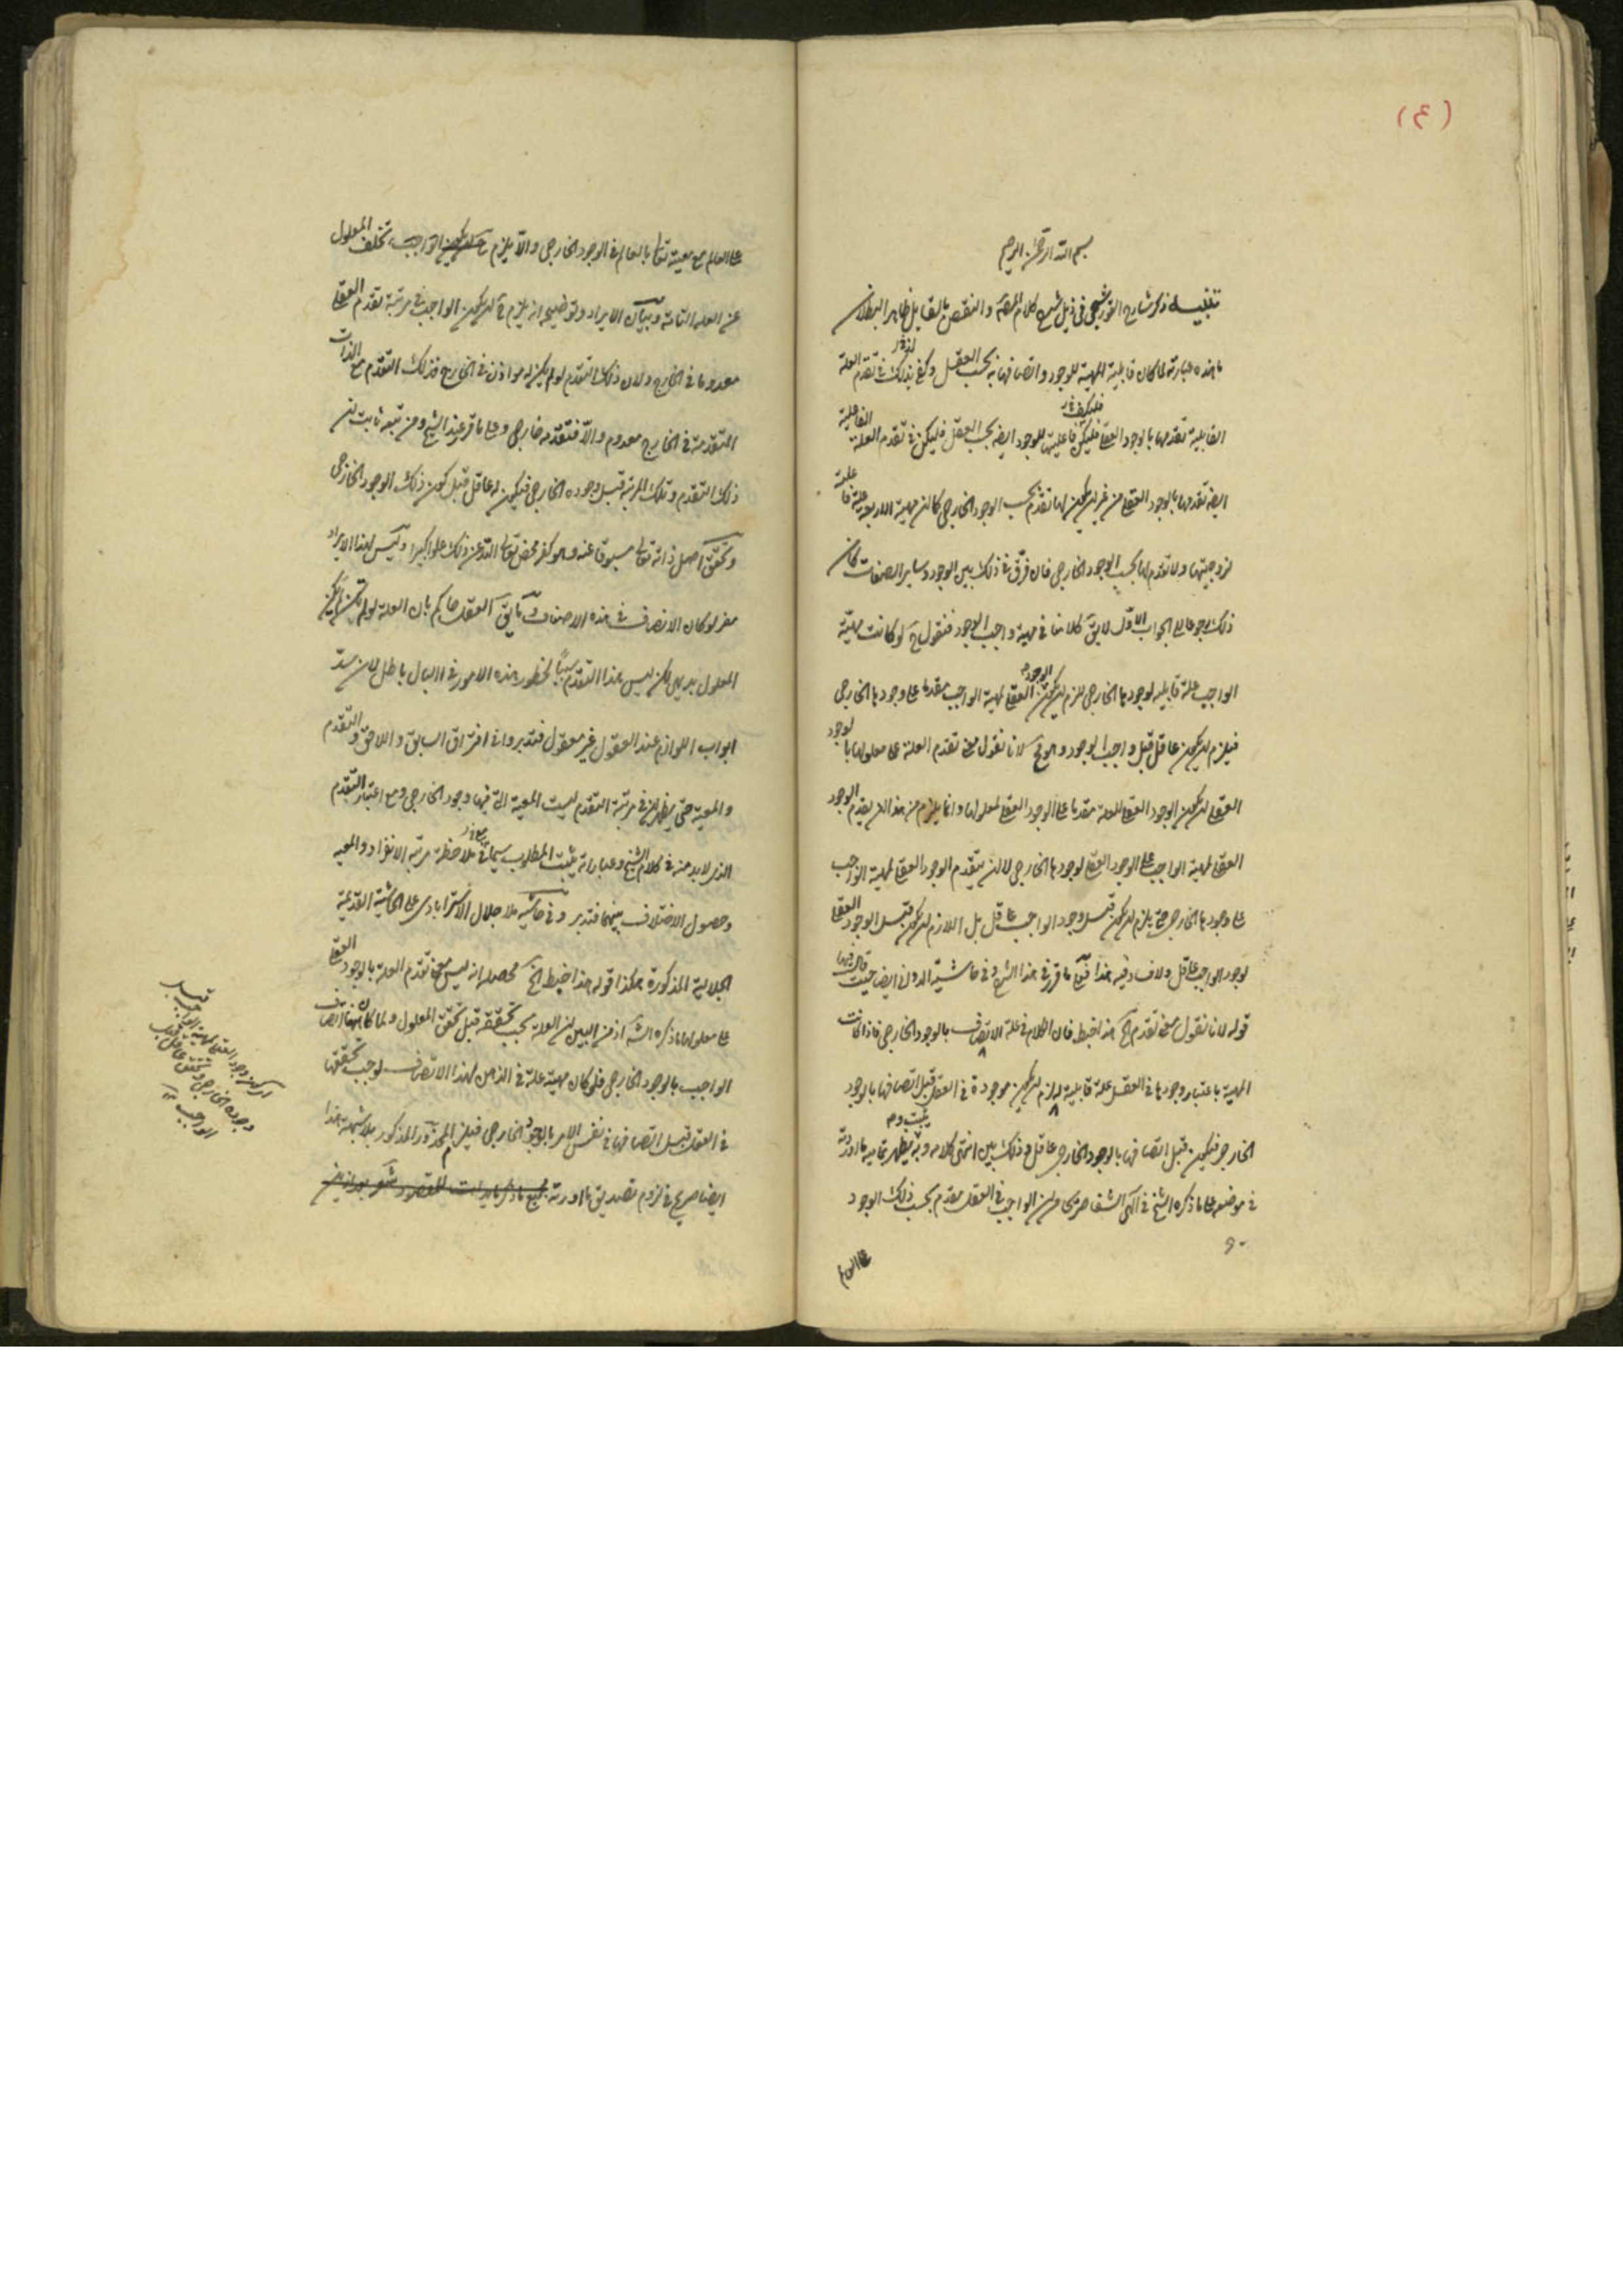 (٤)
بسم الله الرحمن الرحيم
تنبيه ذكر شارح القوشجى فى ذيل شرح كلام المصنف والنقض بالقابل ظاهر البطلان
ما هذه عبارته لما كان قابلية المهية للوجود واتصافها به بحسب العقل وكفى بذلك فى تقدم العلة
القابلية تقدمها بالوجود العقلى فليكن فاعليتها للوجود ايضا بحسب العقل فليكن فى تقدم العلة الفاعلية
ايضا تقدمها بالوجود العقلى من غير ان يكون لها تقدم بحسب الوجود الخارجى كما ان مهية الاربعة علة فاعلية
لزوجيتها ولا تقدم لها بحسب الوجود الخارجى فان فرق فى ذلك بين الوجود وساير الصفات كان
ذلك رجوعا الى الجواب الاول لا يق كلامنا فى مهية واجب الوجود فنقول ح لو كانت مهية
الواجب علة قابلية لوجودها الخارجى لزم ان يكون الوجود العقلى لمهية الواجب مقدما على وجودها الخارجى
فيلزم ان يكون عاقل قبل واجب الوجود وهو مح لانا نقول معنى تقدم العلة على معلولها بالوجود
العقلى ان يكون الوجود العقلى للعلة مقدما على الوجود العقلى لمعلولها وانما يلزم من هذا ان يقدم الوجود
العقلى لمهية الواجب على الوجود العقلى لوجودها الخارجى لا ان يتقدم الوجود العقلى لمهية الواجب
على وجودها الخارجى حتى يلزم ان يكون قبل وجود الواجب عاقل بل اللازم ان يكون قبل الوجود العقلى
لوجود الواجب عاقل ولا فساد فيه هذا ما قرر فى هذا الشرح وفى حاشية الدوانى ايضا حيث قال
قوله لانا نقول معنى تقدم الخ هذا خبط فان الكلام فى علة الاتصاف بالوجود الخارجى فاذا كانت
المهية باعتبار وجودها فى العقل علة قابلية له لزم ان يكون موجودة فى العقل قبل اتصافها بالوجود
الخارجى فيكون قبل اتصافها بالوجود الخارجى عاقل وذلك بين انتهى كلامه وبه يظهر تمامية ما اوردته
فى موضعه على ما ذكره الشيخ فى الهى الشفا صريحا من ان الواجب فى العقل مقدم بحسب ذلك الوجود
على العالم
على العالم مع معيته تعالى بالعالم فى الوجود الخارجى والا يلزم تخلف المعلول
عن العلة التامة وبيان الايراد وتوضيحه انه يلزم ح ان يكون الواجب فى مرتبة تقدم العقلى
معدوما فى الخارج ولان ذلك التقدم لو لم يكن له مواذن فى الخارج فذلك التقدم مع الذات
المتقدمة فى الخارج معدوم والا فتقدمه خارجى وعلى ما قرر عند الشيخ ومن تبعه ثابت ان
ذلك التقدم وتلك المرتبة قبل وجوده الخارجى فيكون له عاقل قبل كون ذلك الوجود الخارجى
وتحقق اصل ذاته تعالى مسبوقا عنه وهو كفر محض تعالى الله عن ذلك علوا كبيرا وليس لهذا الايراد
مفر لو كان الانصاف فى هذه الاوصاف وما يق العقل حاكم بان العلة لو لم تكن لم يكن
المعلول بديهى لكن ليس هذا التقدم سببا لخطور هذه الامور فى البال باطل لان سد
ابواب اللوازم عند العقول غير معقول فتدبر وان افتراق السابق واللاحق والتقدم
والمعية حتى يظهر ان فى مرتبة التقدم ليست المعية التى فيها وجود الخارجى ومع اعتبار التقدم
الذى لا بد منه فى كلام الشيخ وعباراته يثبت المطلوب سيما فى ملاحظة مرتبة الانفراد والمعية
وحصول الاختلاف بينهما فتدبر وفى حاشية ملا جلال الاسترابادى على الحاشية القديمة
الجلالية المذكورة هكذا قوله هذا خبط الخ محصله انه ليس معنى تقدم العلة بالوجود العقلى
على معلولها ما ذكره الشه اذ من البين ان العلة يجب تحققه قبل تحقق المعلول ولما كان ههنا اتصاف
الواجب بالوجود الخارجى فلو كان مهيته علة فى الذهن لهذا الاتصاف لوجب تحققها
فى العقل قبل اتصافها فى نفس الامر بالوجود الخارجى فيلزم المحذور المذكور بلا شبهة هذا
ايضا صريح فى لزوم تصديق ما اوردته
قبل
اى كون وجود العقلى لمهية الواجب
وجوده الخارجى تحقق عاقل قبل
الواجب